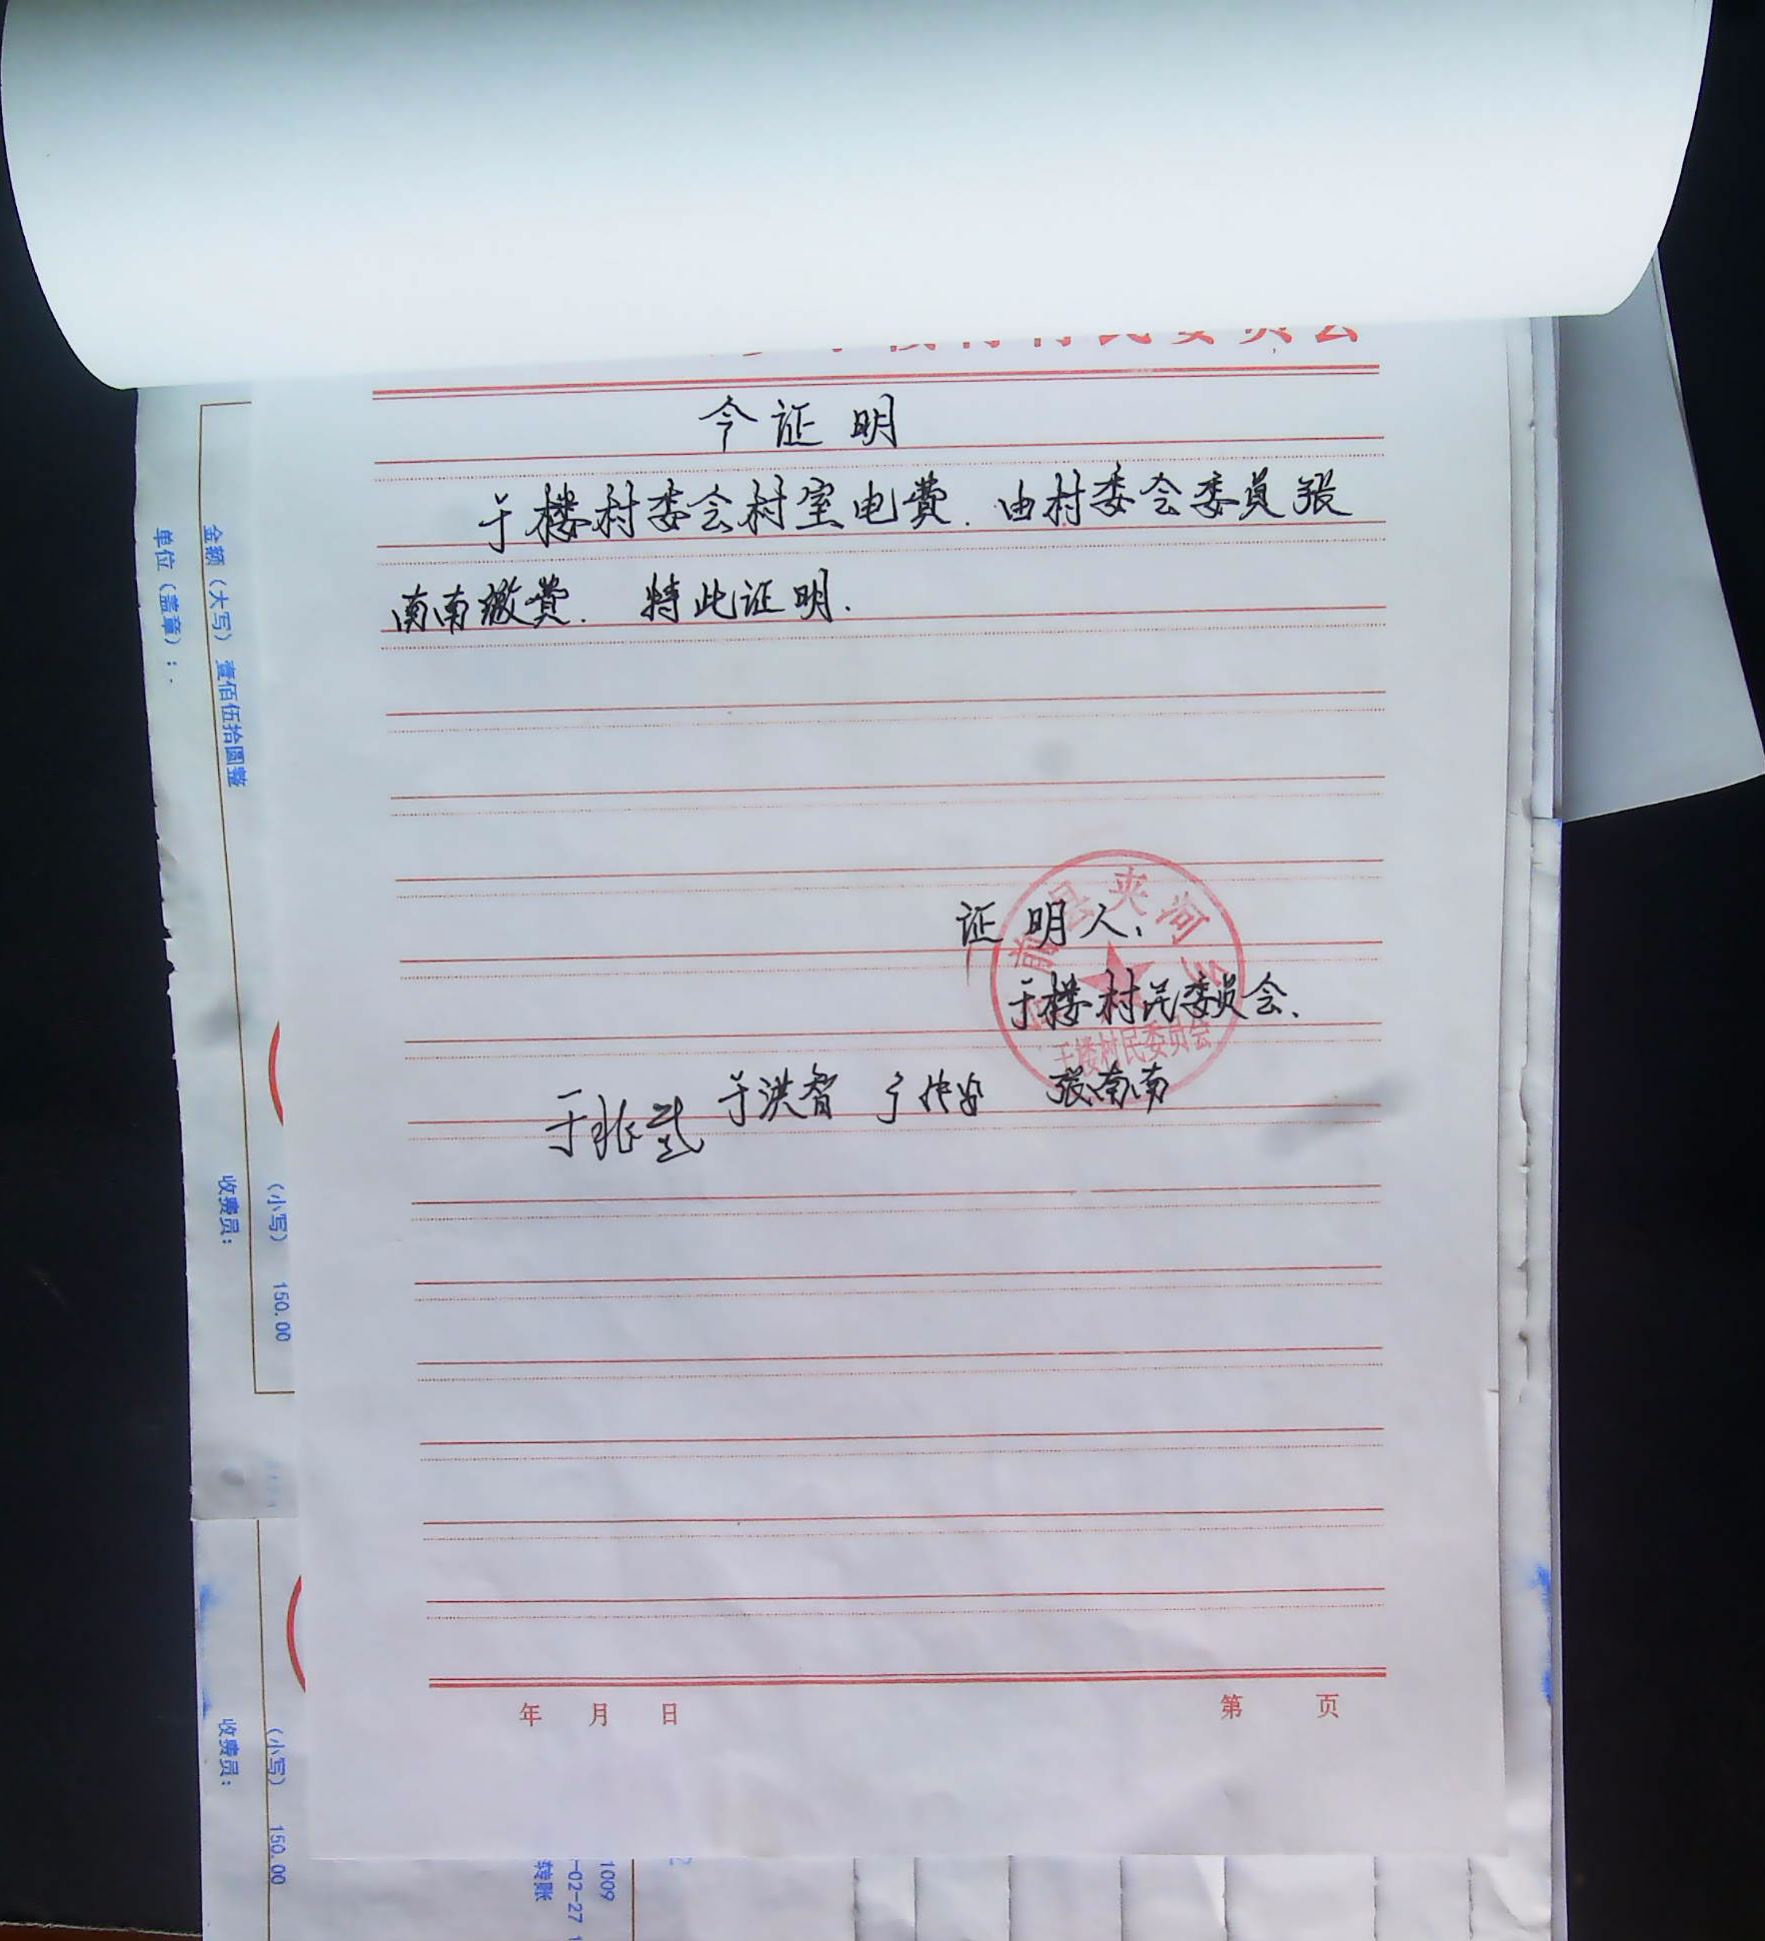 村村民委员会
今证明
于楼村委会村室电费.由村委会委员张
南南缴费. 特此证明.
证明人:
于楼村民委员会.
县夹河乡
于楼村民委员会
于洪智 张南南
年 月 日
第 页
金额(大写) 壹佰伍拾圆整
单位(盖章):
(小写) 150.00
收费员:
(小写) 150.00
收费员:
1009
-02-27 1
转账